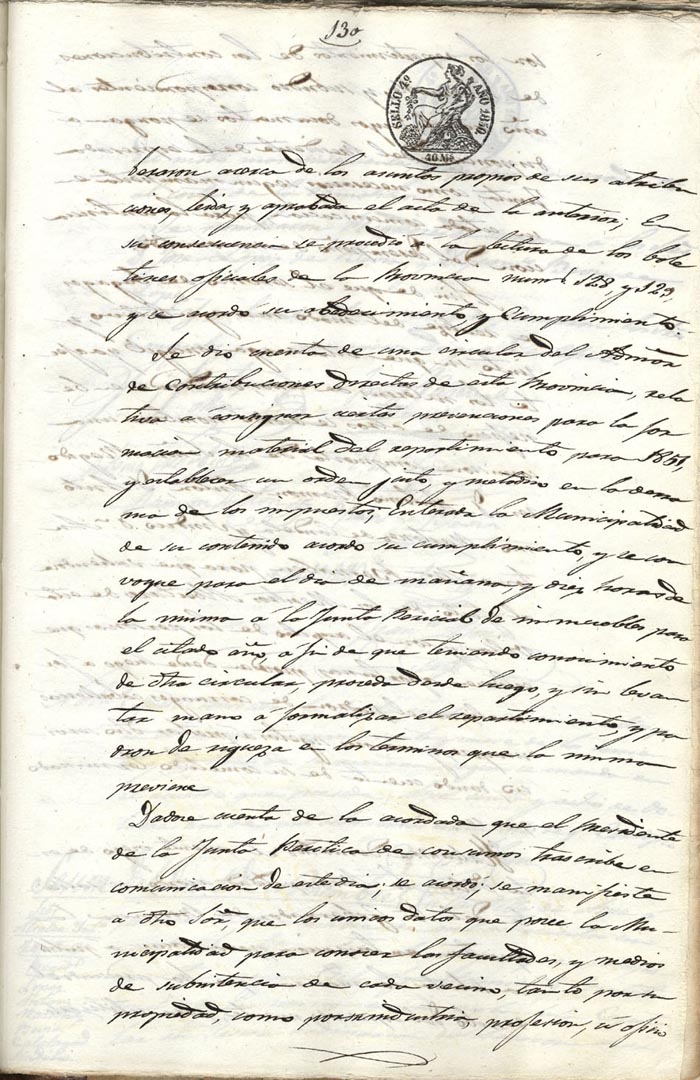 130
SELLO 4º AÑO 1850.
40 Ms
beraron acerca de los asuntos propios de sus atribu
ciones, leida, y aprobada el acta de la anterior; En
su consecuencia se procedió a la lectura de los bole
tines oficiales de la Provincia nums 128, y 129,
y se acordó su obedecimiento, y Cumplimiento.
Se dió cuenta de una circular del Admõr
de Contribuciones directas de esta Provincia, rela
tiva a consignar ciertas prevenciones para la for
macion material del repartimiento para 1851,
y establecer un orden justo, y metodico en la derra
ma de los impuestos; Enterada la Municipalidad
de su contenido acordó su cumplimiento, y se con
voque para el dia de mañana, y diez horas de
la misma a la Junta Pericial de inmuebles para
el citado año, a fin de que teniendo conocimiento
de dha circular, proceda desde luego, y sin levan
tar mano a formalizar el repartimiento, y pa
dron de riqueza en los terminos que la misma
previene
Dadose cuenta de la acordada que el Presidente
de la Junta Pericial de consumos trascribe en
comunicacion de este dia; se acordó; se manifieste
a dho Señ, que los unicos datos que posee la Mu-
nicipalidad para conocer las facultades, y medios
de subsistencia de cada vecino, tanto por su
propiedad, como por su industria, profesion, ú oficio